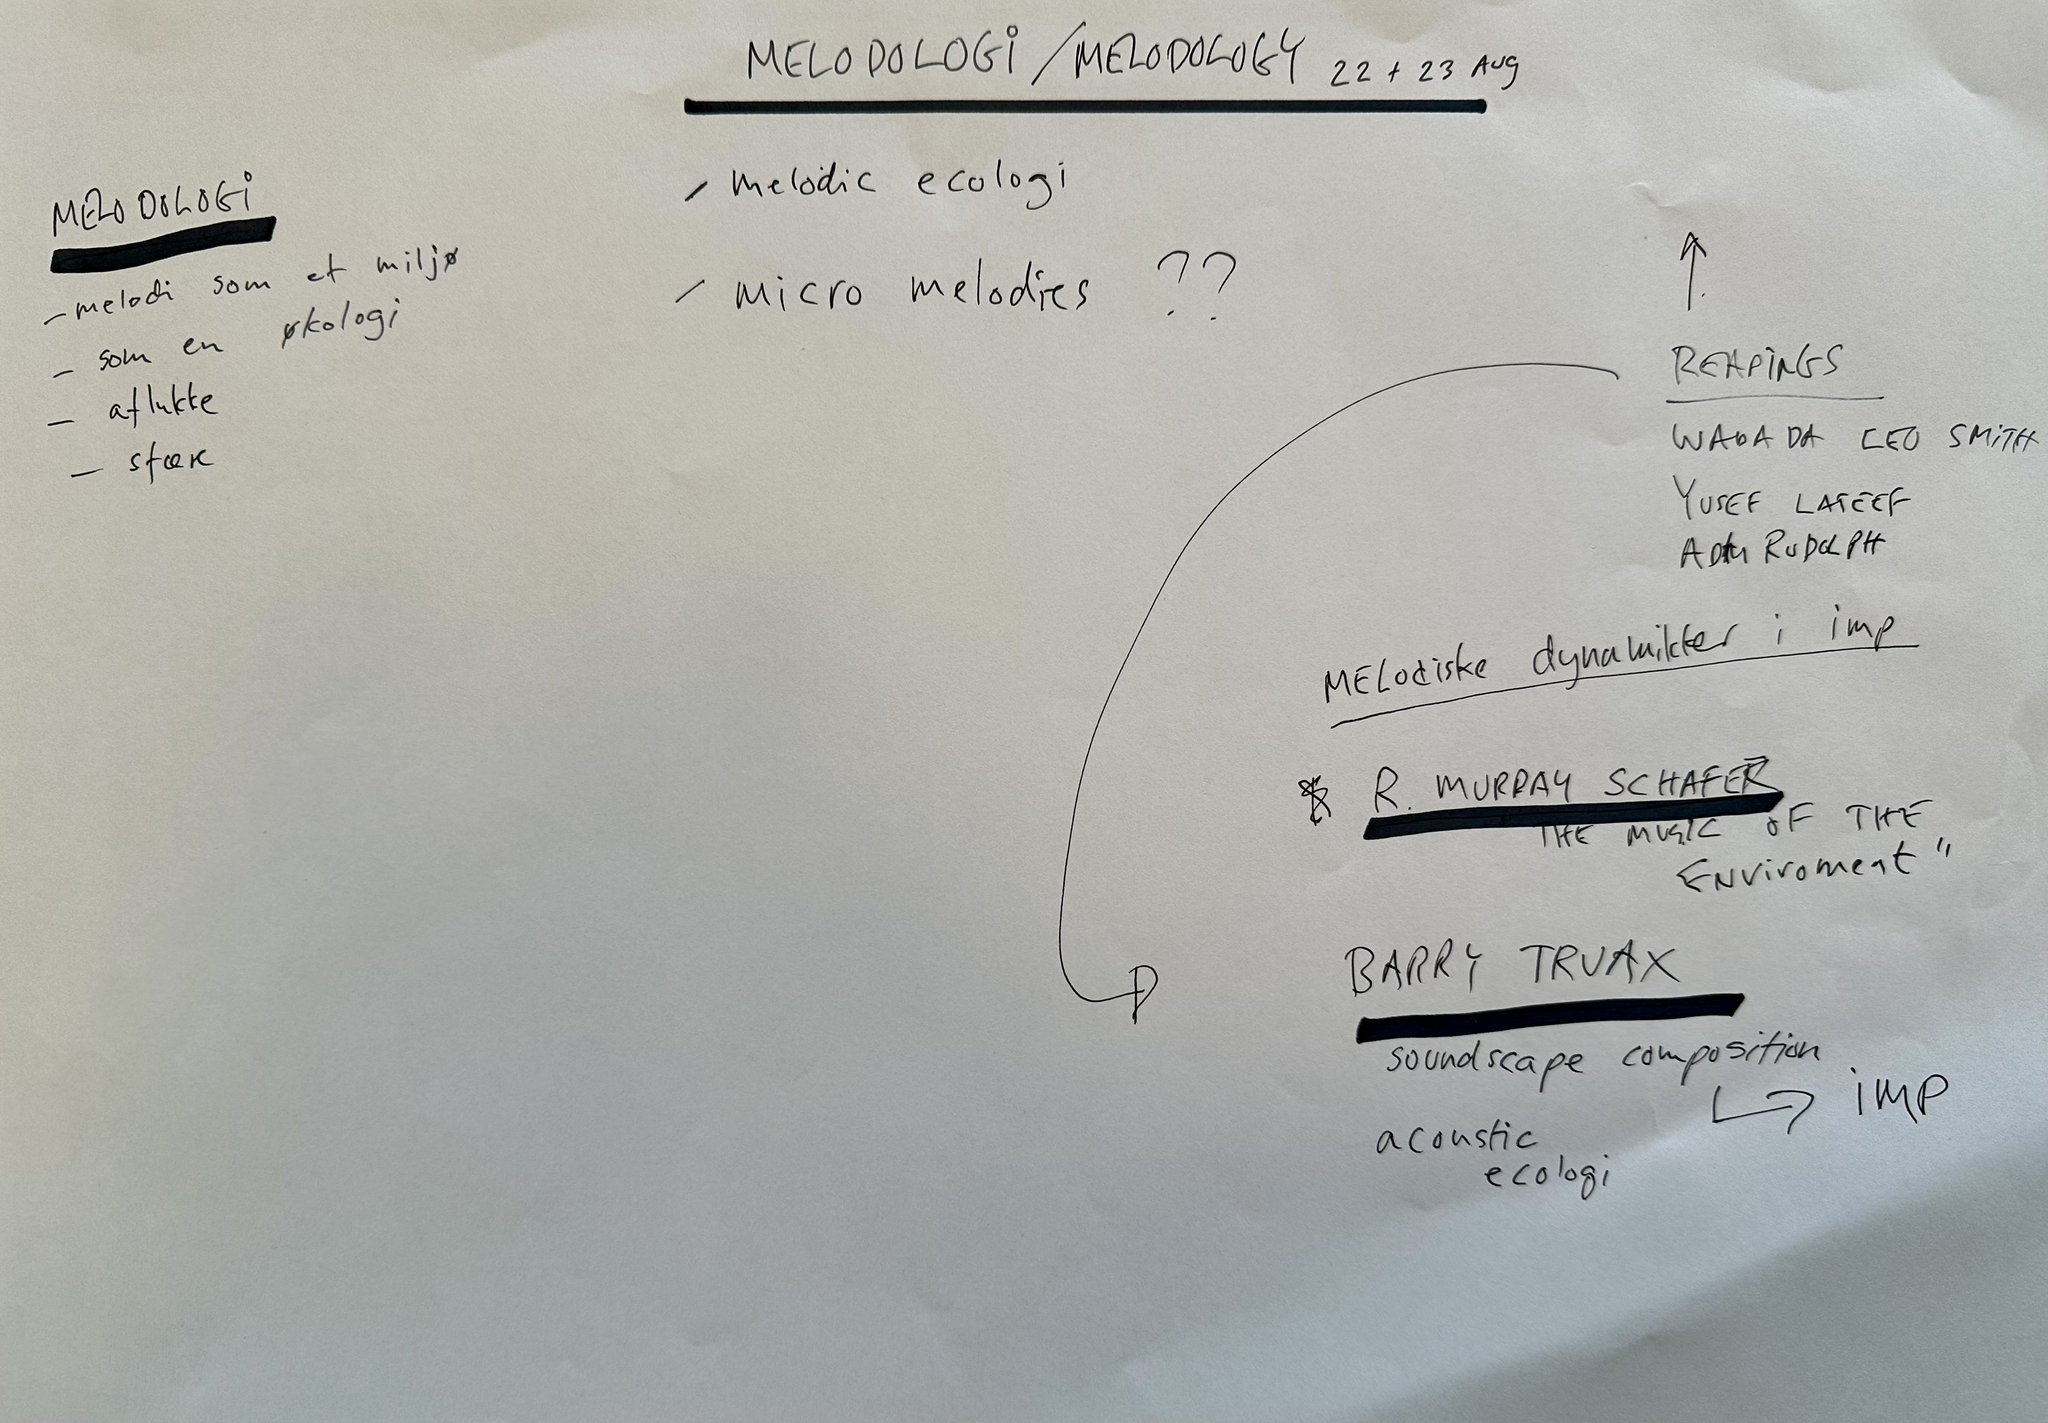 MELODOLOGI / MELODOLOGY 22 + 23 Aug
MELODOLOGI
- melodi som et miljø
- som en økologi
- aflukke
- sfære
- melodic ecologi
- micro melodies ??
READINGS
WADADA LEO SMITH
YUSEF LATEEF
ADAM RUDOLPH
MELodiske dynamikker i imp
* R. MURRAY SCHAFER
THE MUSIC OF THE
ENViroment"
BARRY TRUAX
soundscape composition
→ iMP
acoustic
ecologi